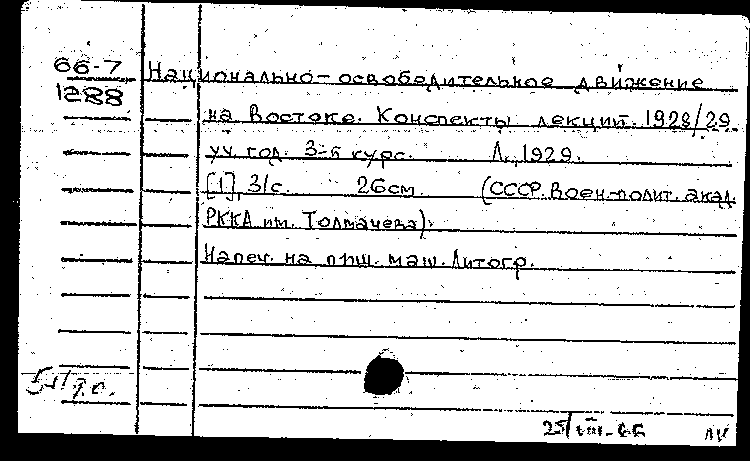 66-7 Национально-освободительное движение
1288
на Востоке. Конспекты лекций. 1928/29
уч. год. 3-й курс. Л., 1929.
[1], 31с. 26см. (СССР. Воен.-полит. акад.
РККА им. Толмачева).
Напеч. на пиш. маш. Литогр.
25/VIII-66